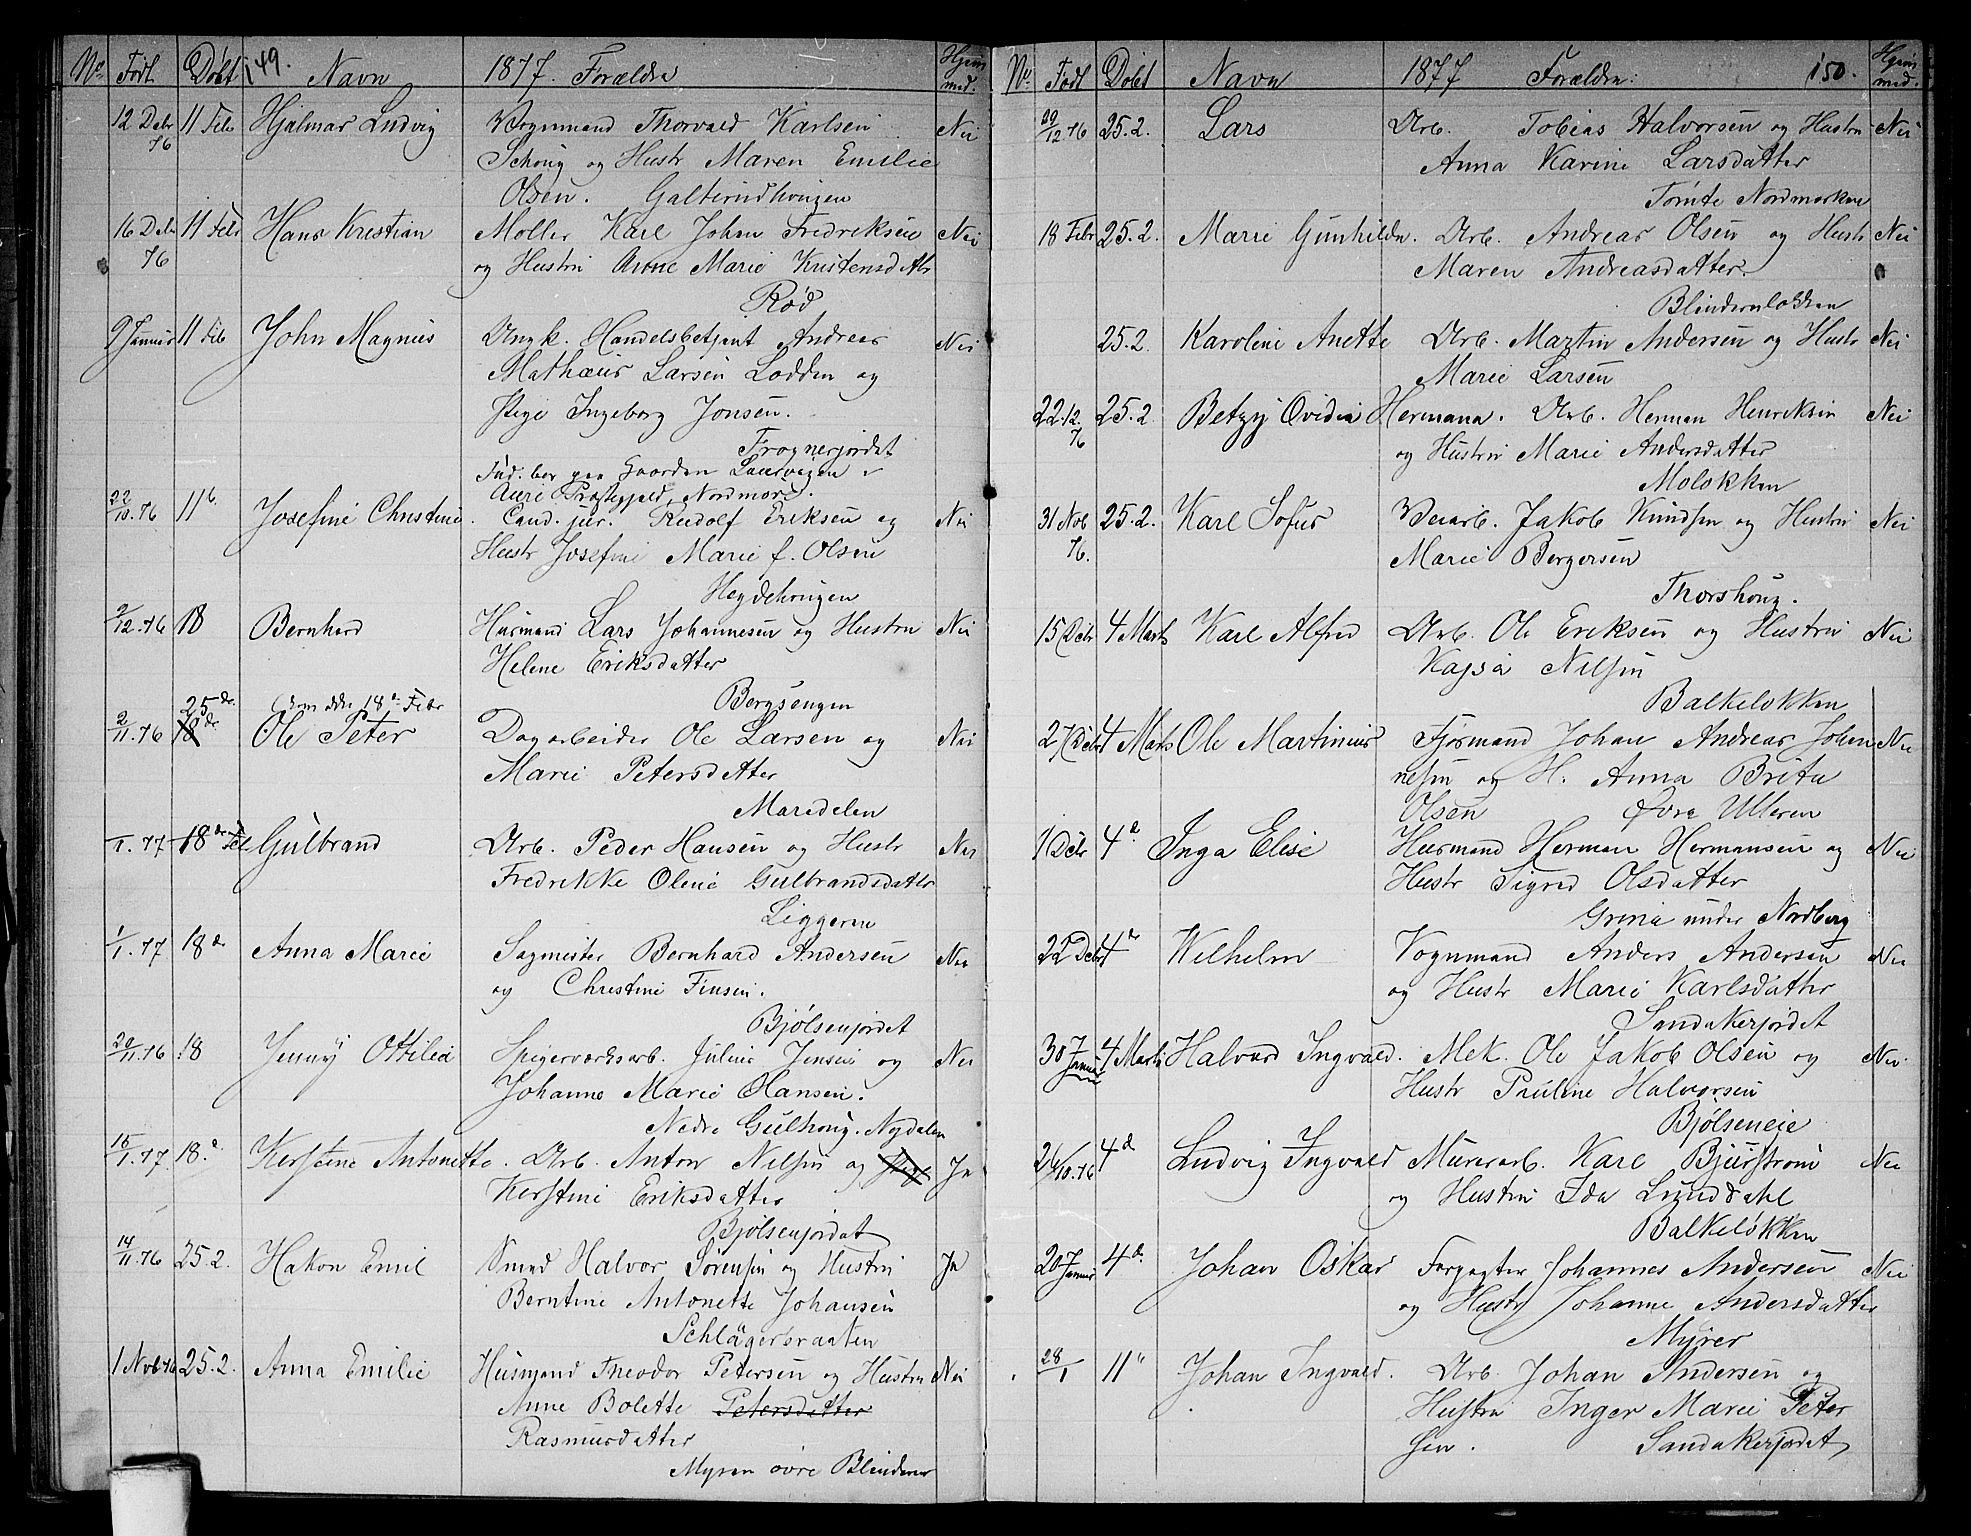 No Født Døbt 149. Navn 1877. Forældre Hjem med.
12 Debr 76 11 Feb Hjalmar Ludvig Vognmand Thorvald Karlsen Nei
Schoug og Hustr Maren Emilie
Olsen.
16 Debr 76 11 Febr Hans Kristian Møller Karl Johan Fredriksen Nei
og Hustru Anne Marie Kristensdatr
Rød
9 Januar 11 Feb John Magnus Ungk. Handelsbetjent Andreas Nei
Mathæus Larsen Lodden og
Pige Ingeborg Jonsen.
Frognerjordet
Fad. bor paa Gaarden
Aure Præstegjeld, Nordmøre.
22/10.76 11te Josefine Christine. Cand. jur. Rudolf Eriksen og Nei
Hustr Josefine Marie f. Olsen
Hegdehougen
9/12.76 18 Bernhard Husmand Lars Johannesen og Hustru Nei
Helene Eriksdatter
Bergsengen
25de
2/11.76 18de Ole Peter Dagarbeider Ole Larsen og Nei
Marie Petersdatter
Maredalen
/1.77 18de Feb Gulbrand Arb. Peder Hansen og Hustr Nei
Fredrikke Oline Gulbrandsdatter
Liggeren
1/1.77 18de Anna Marie Sagmester Bernhard Andersen Nei
og Christine Finsen.
Bjølsenjordet
20/11.76 18 Jenny Ottilia Spigerværksarb. Julius Jensen og Nei
Johanne Marie Hansen.
Nedre Gulhoug. Nydalen
15/1.77. 18.d Kerstine Antonette. Arb. Anton Nilsen og Pige Ja
Kerstine Eriksdatter
Bjølsenjordet
14/11.76 25.2. Hakon Emil Smed Halvor Sørensen og Hustru Ja
Berntine Antonette Johansen
Schlägersraaten
1 Nob 76 25.2. Anna Emilie Husmand Theodor Petersen og Hustru Nei
Anne Bolette Petersdatter
Rasmusdatter
Myren øvre Blindern
No. Født Døbt Navn 1877 Forældre: 150. Hjem med.
29/12 76 25.2. Lars Arb. Tobias Halvorsen og Hustru Nei
Anna Karine Larsdatter
Tømte Nordmarken
18 Febr 25.2. Marie Gunhilda. Arb. Andreas Olsen og Hustr Nei
Maren Andreasdatter.
Blindernløkken
25.2. Karoline Anette Arb. Martin Andersen og Hustr Nei
Marie Larsen
22.12.76 25.2. Betzy Ovidia Hermana. Arb. Herman Henriksen Nei
og Hustru Marie Andersdatter
Moløkken
31 Nob 76. 25.2. Karl Sofus Veiarb. Jakob Knudsen og Hustru Nei
Marie Bergersen
Thorshoug.
15 Debr 4 Marts Karl Alfred Arb. Ole Eriksen og Hustru Nei
Kajsa Nilsen
Balkeløkken
27 Debr 4 Marts Ole Martinius Formand Johan Andreas Johan Nei
nesen og H. Anna Brita
Olsen Øvre Ulleren
1 Debr 4d Inga Elise Husmand Herman Hermansen og Nei
Hustr Sigrid Olsdatter
Grinia under Nordberg
22 Debr 4d Wilhelm Vognmand Anders Andersen Nei
og Hustr Marie Karlsdatter
Sandakerjordet
30 Januar 4 Marts Halvard Ingvald. Mek. Ole Jakob Olsen og Nei
Hustr Pauline Halvorsen
Bjølseneie
/10.76 4d Ludvig Ingvald Murerarb. Karl Bjurstrøm Nei
og Hustru Ida Lunddahl
Balkeløkken
20 Januar 4d. Johan Oskar Forpagter Johannes Andersen Nei
og Hustr Johanne Andersdatter
Myrer
28/1 11" Johan Ingvald. Arb. Johan Andersen og
Hustru Inger Marie Peter
sen. Sandakerjordet